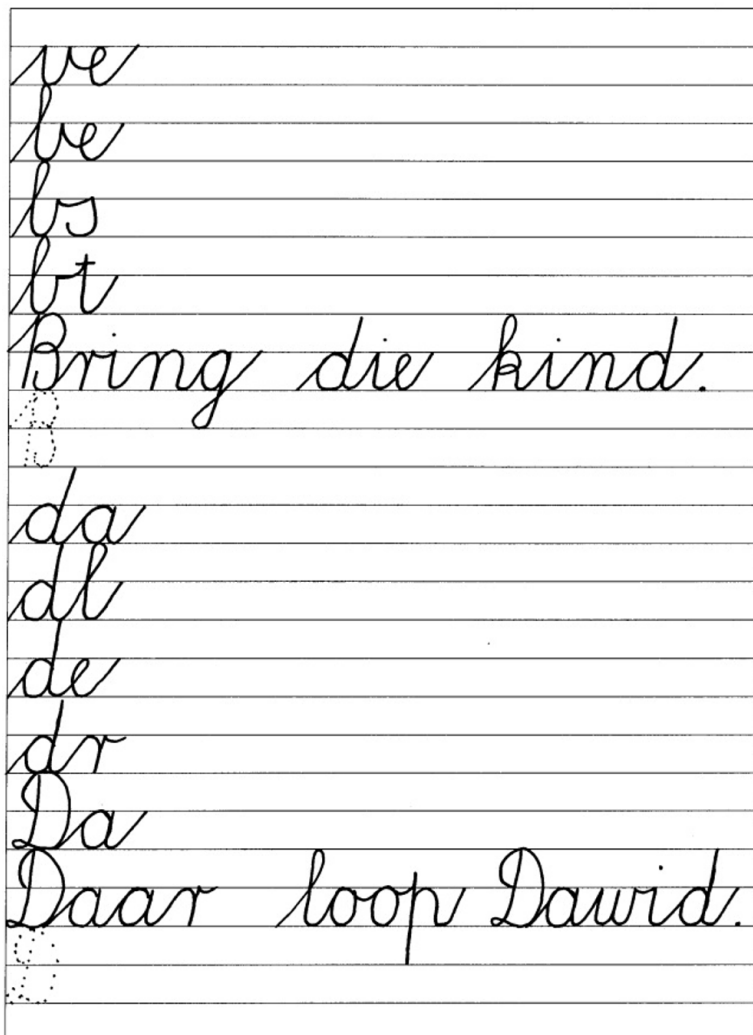 ve
be
bs
bt
Bring die kind.
B
da
dl
de
dr
Da
Daar loop Dawid.
D